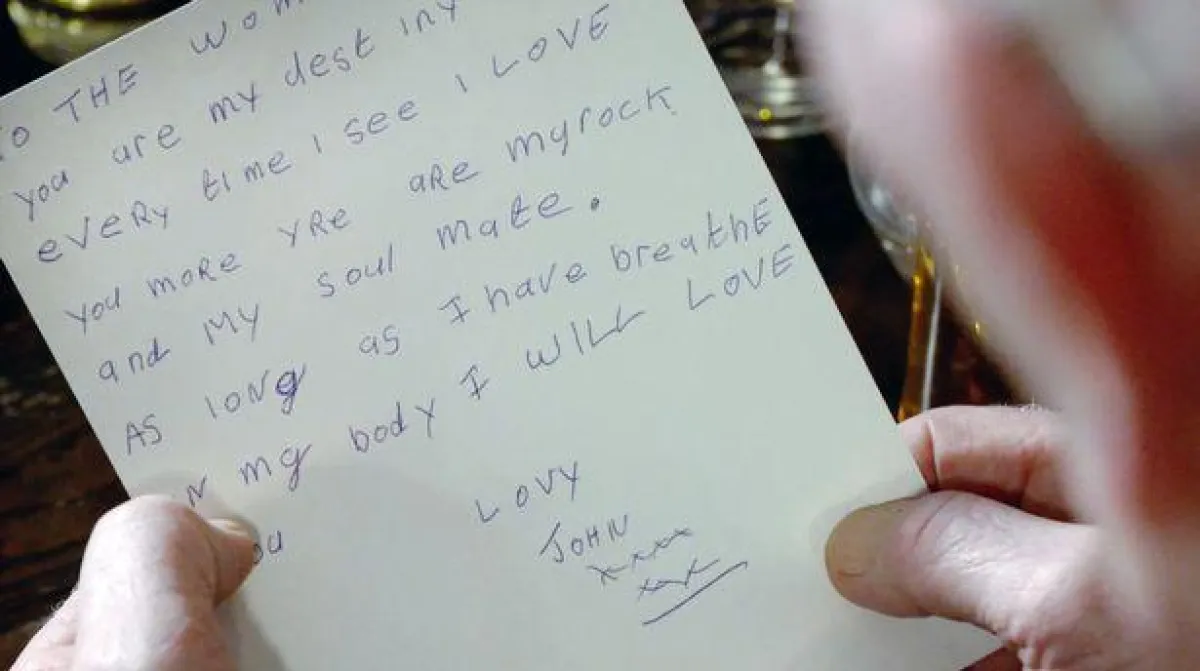 TO THE WOM
you are my destiny
every time I see I LOVE
you more yRE are my rock
and MY soul mate.
AS long as I have breathe
N my body I WILL LOVE
ou
LOVY
JOHN
xxxx
xxx